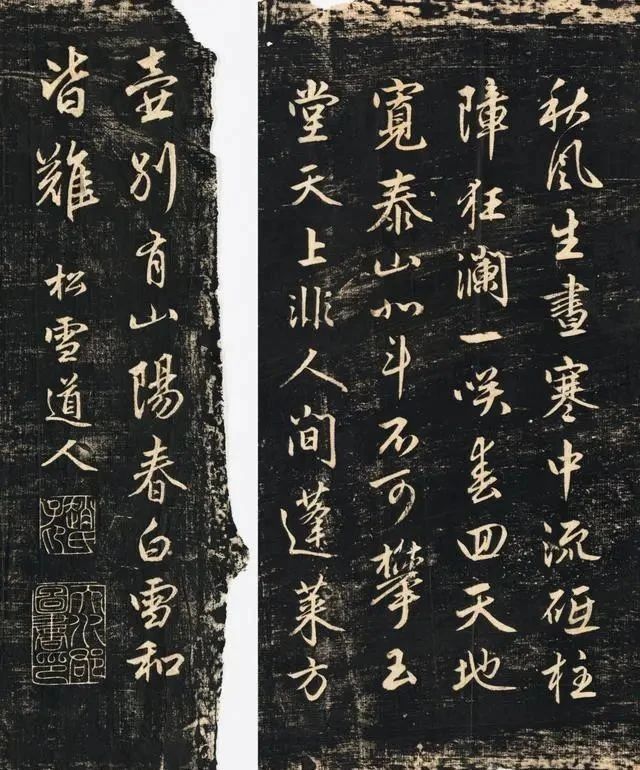 秋風生晝寒中流砥柱
障狂瀾一咲春回天地
寬泰山北斗不可攀玉
堂天上非人間蓬萊方
壺別有山陽春白雪和
皆難
松雪道人
趙氏子昂
天水郡圖書印